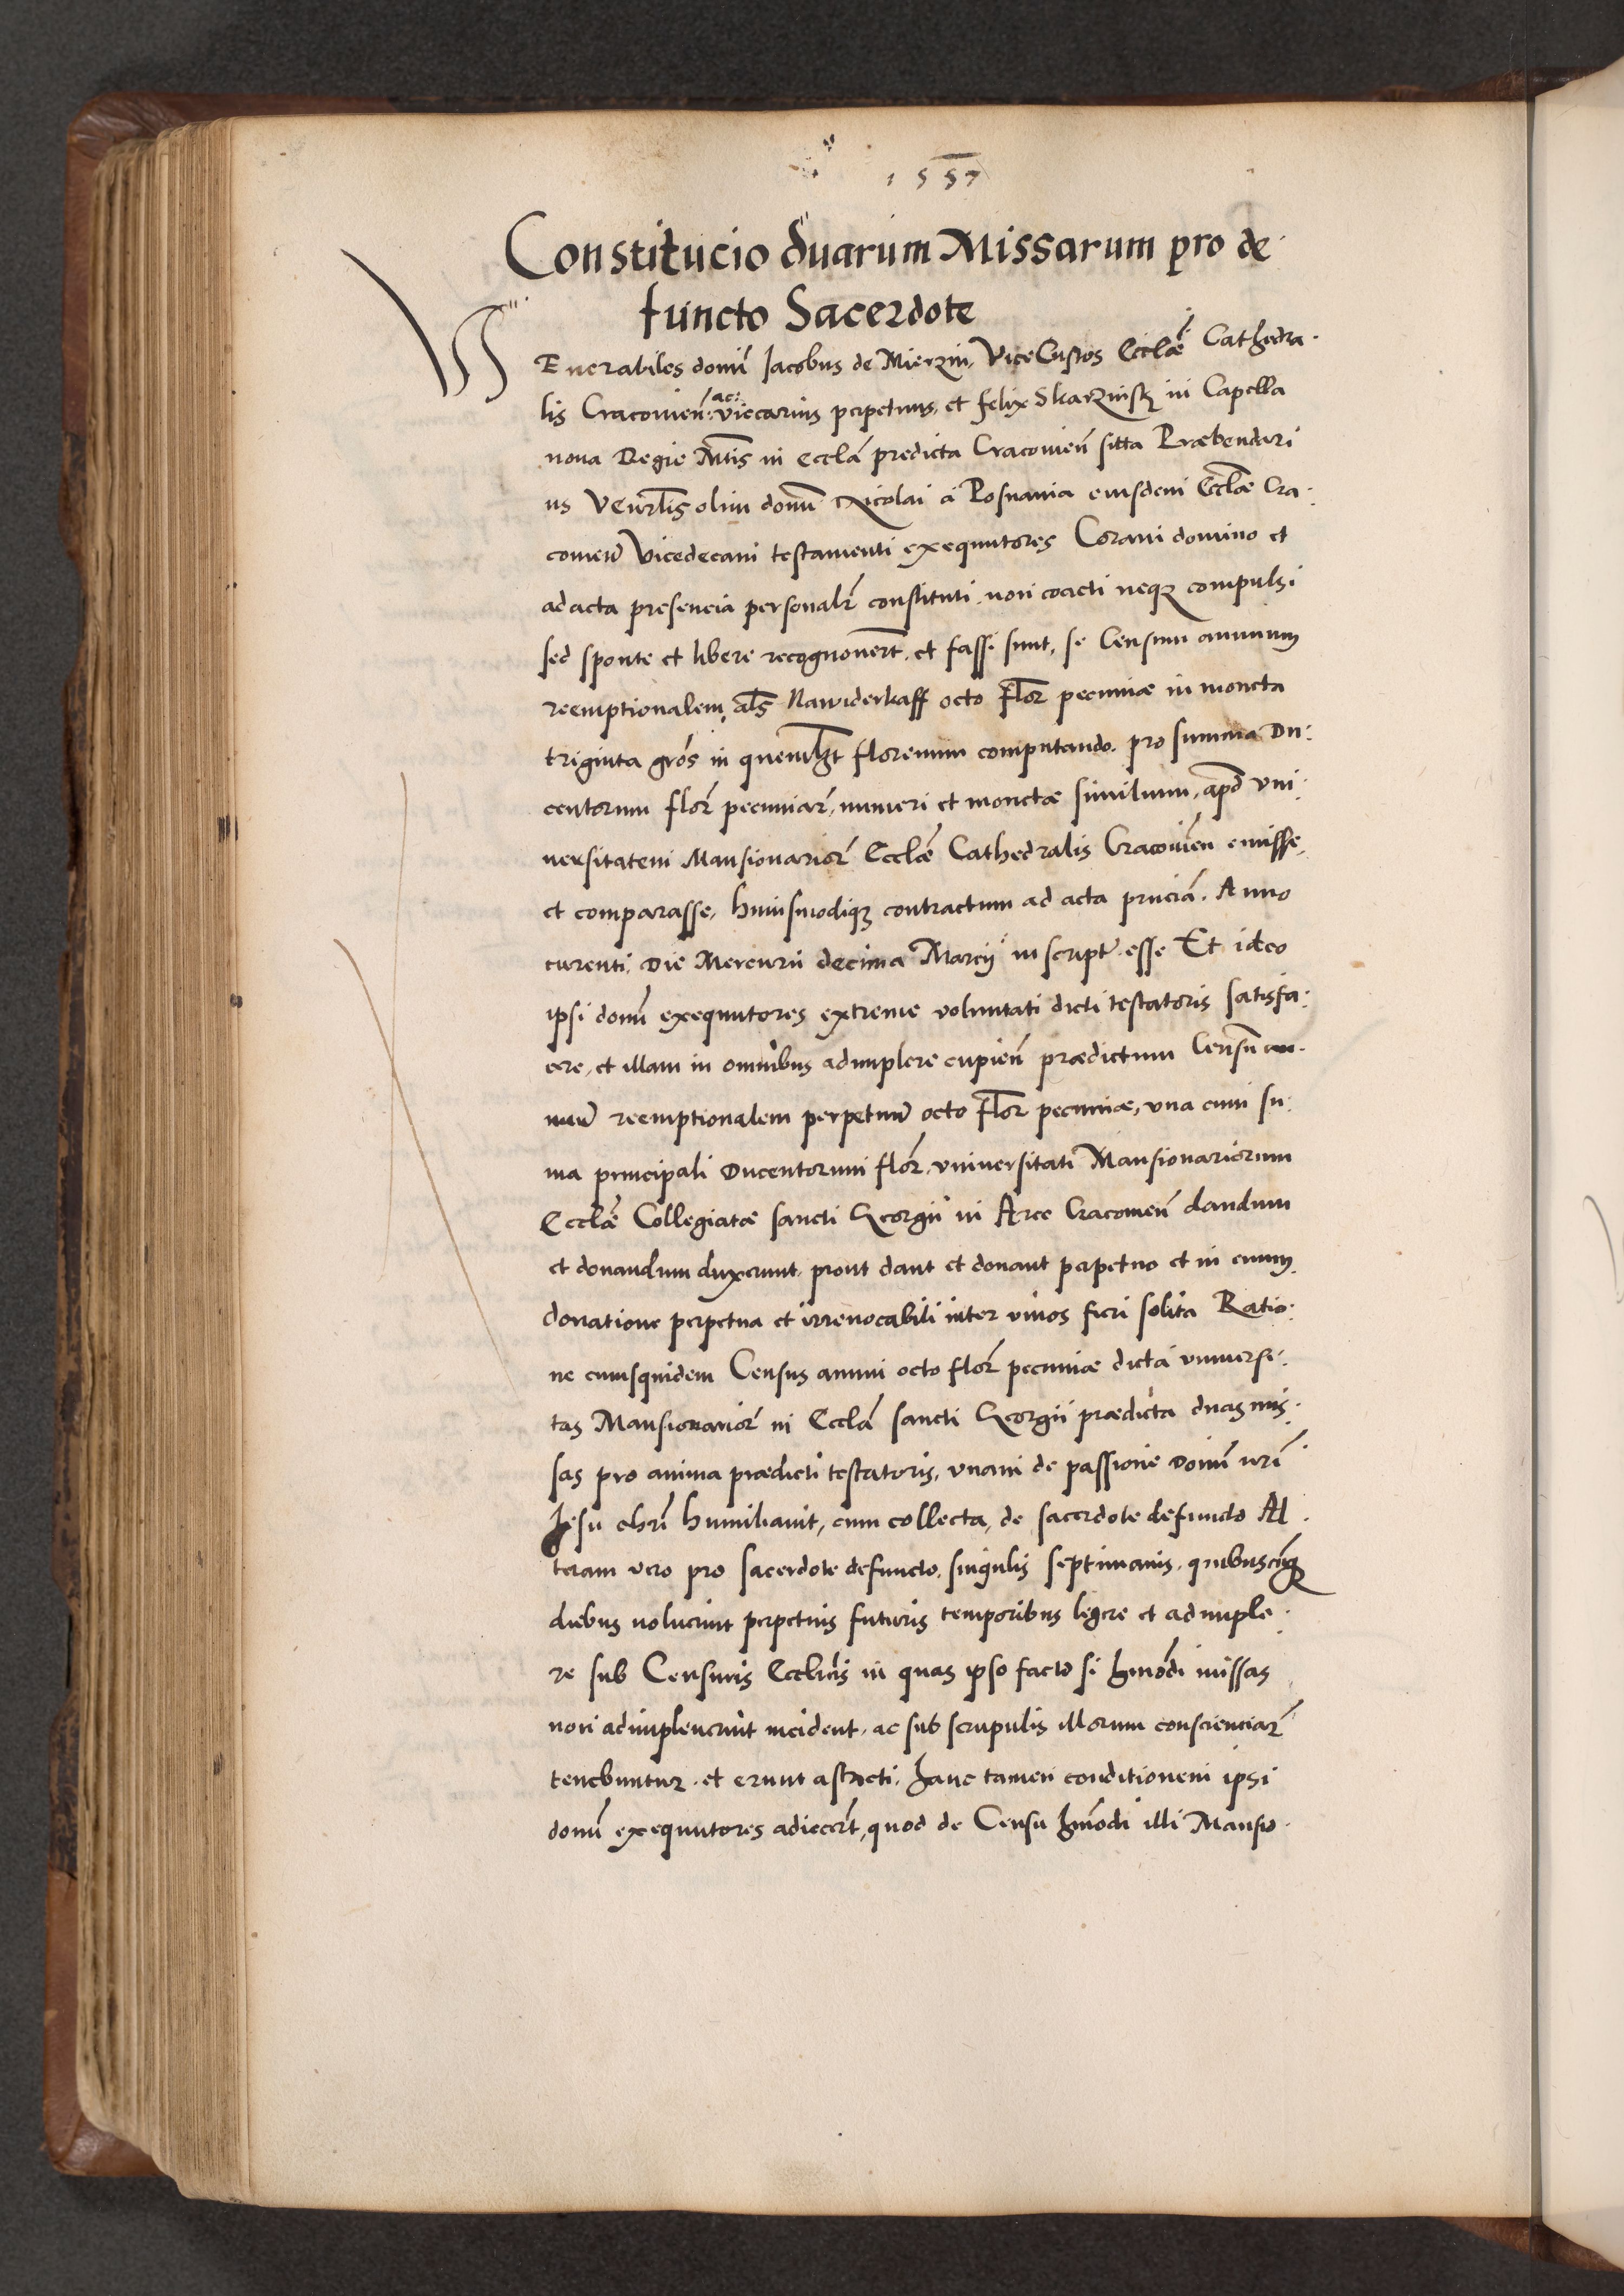 1557
Constitucio duarum Missarum pro de
functo Sacerdote
VEnerabiles domĩ Jacobus de Mierzin, ViceCustos Ecclæ̃ Cathedra
lis Cracovieñ: ac: viccarius perpetuus, et felix Skarzinsky in Capella
nova Regie Mtis in ecclã predicta Cracovieñ sitta Præbendari
us Venrlis olim domĩ Nicolai a Posnania eiusdem Ecclæ Cra
covieñ Vicedecani testamenti exequutores Coram domino et
ad acta presencia personalr̃ constituti, non coacti neqz compulsi
sed sponte et libere recognovert̃, et fassi sunt, se Censum annuum
reemptionalem, als̃ Nawiderkaff octo flor̃ pecuniæ in moneta
triginta gros̃ in quemlḩt florenum computando, pro summa Du
centorum flor̃ pecuniar̃, numeri et monetæ similium, apd̃ Uni
versitatem Mansionarior̃ Ecclæ̃ Cathedralis Cracovieñ emisse,
et comparasse, huiusmodiqz contractum ad acta pñciã. Anno
curenti, Die Mercurii decima Marcÿ inscript̃ esse Et ideo
ipsi domĩ exequutores extreme voluntati dicti testatoris satisfa
cere, et illam in omnibus adimplere cupieñ prædictum Censum̃ an
nuũ reemptionalem perpetuũ octo flor̃ pecuniæ, una cum su
ma principali Ducentorum flor̃, universitati Mansionariorum
Ecclæ̃ Collegiatæ sancti Georgii in Arce Cracovieñ dandum
et donandum duxerunt, prout dant et donant perpetuo et in evum,
donatione perpetua et irrevocabili inter vivos fieri solita Ratio
ne cuiusquidem Census annui octo flor̃ pecuniæ dicta universi
tas Mansionarior̃ in Ecclã sancti Georgii prædicta duas mis
sas pro anima prædicti testatoris, unam de passione Domĩ nrĩ
Jesu chrĩ humiliavit, cum collecta, de sacerdote defuncto Al
teram vero pro sacerdote defuncto, singulis septimanis, quibuscũqz
diebus voluerint perpetuis futuris temporibus legere et adimple
re sub Censuris Ecclicis in quas ipso facto si hmõdi missas
non adimpleverint incident, ac sub scrupulis illorum conscienciar̃
tenebuntur, et erunt astricti, Hanc tamen conditionem ipsi
domĩ exequutores adiecert̃, quod de Censu hmõdi illi Mansio